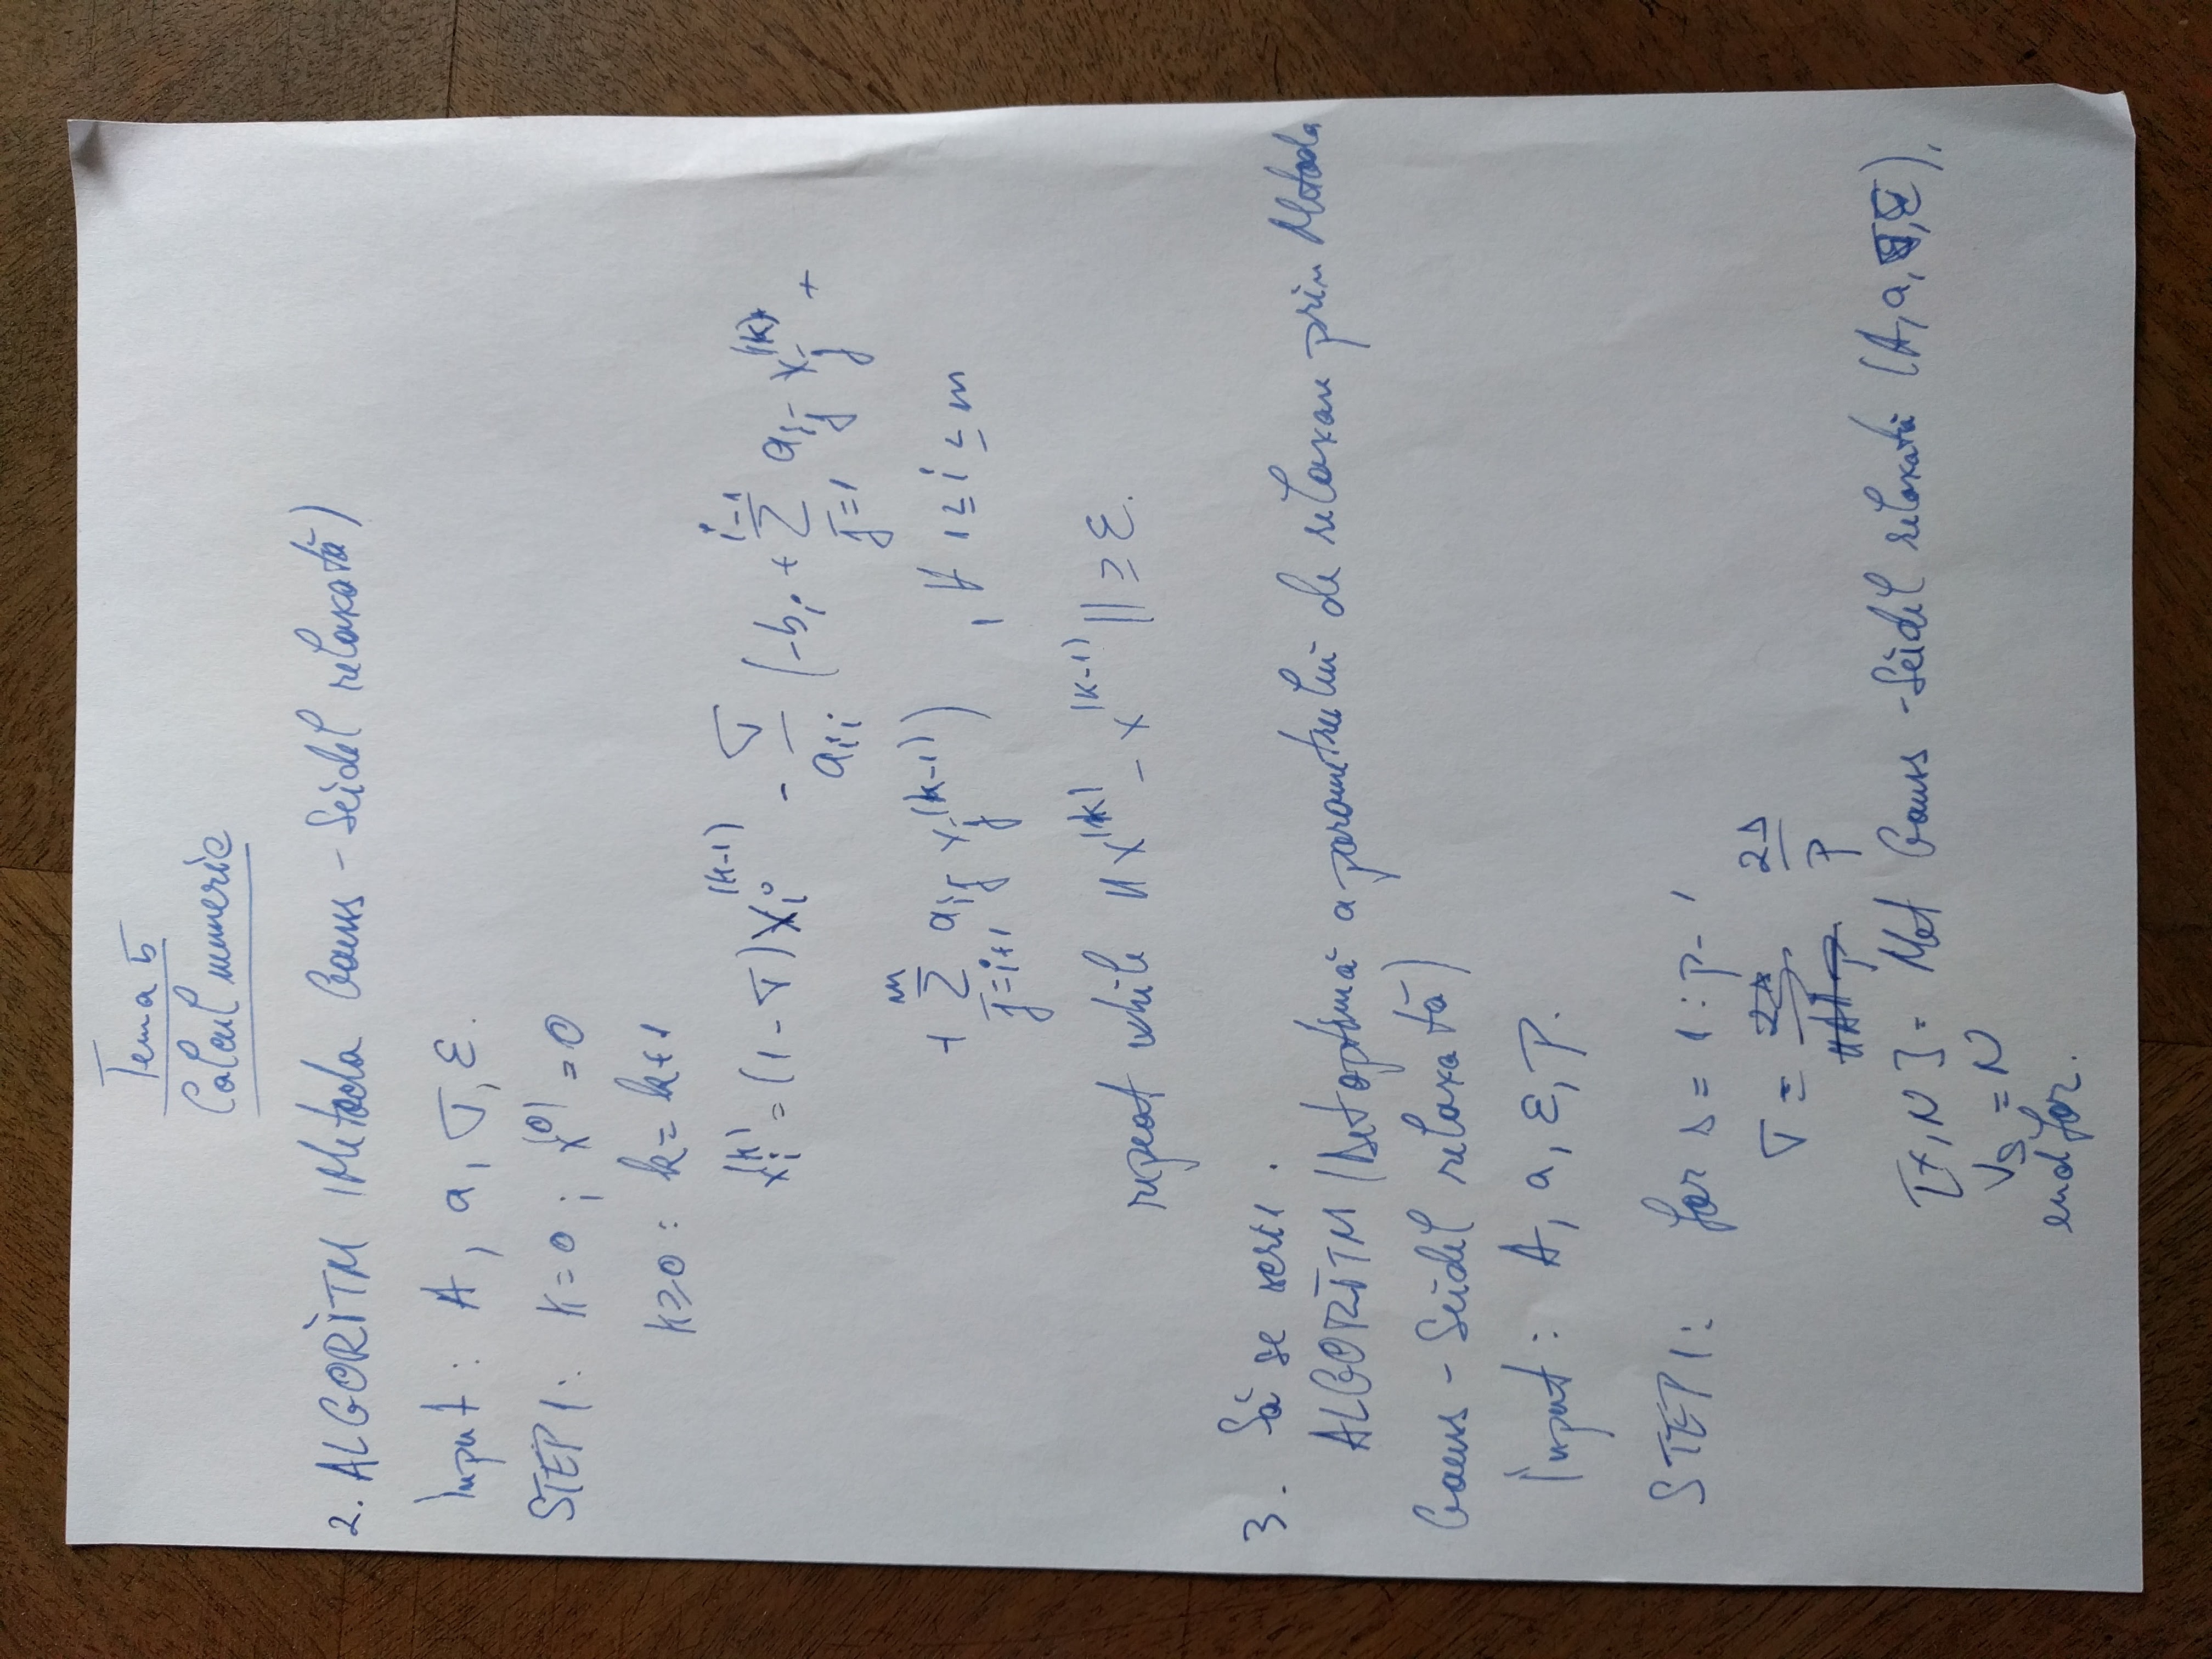 Tema 5
Calcul numeric
2. ALGORITM (Metoda Gauss - Seidel relaxată)
Input : A, a, σ, ε.
STEP 1: k=0; x^(0) = 0
k≥0: k=k+1
x_i^(k) = (1-σ)x_i^(k-1) - σ/a_ii (-b_i + Σ_{j=1}^{i-1} a_ij x_j^(k) +
+ Σ_{j=i+1}^{n} a_ij x_j^(k-1)) , ∀ 1≤i≤n
repeat while ||x^(k) - x^(k-1)|| ≥ ε.
3. Să se
ALGORITM (Det optimă a parametrului de relaxare prin Metoda
Gauss - Seidel relaxată)
Input : A, a, ε, p.
STEP 1: for s = 1 : p-1
σ = 2s/p
[x, N] = Met Gauss - Seidel relaxată (A, a, σ, ε),
V_s = N
endfor.